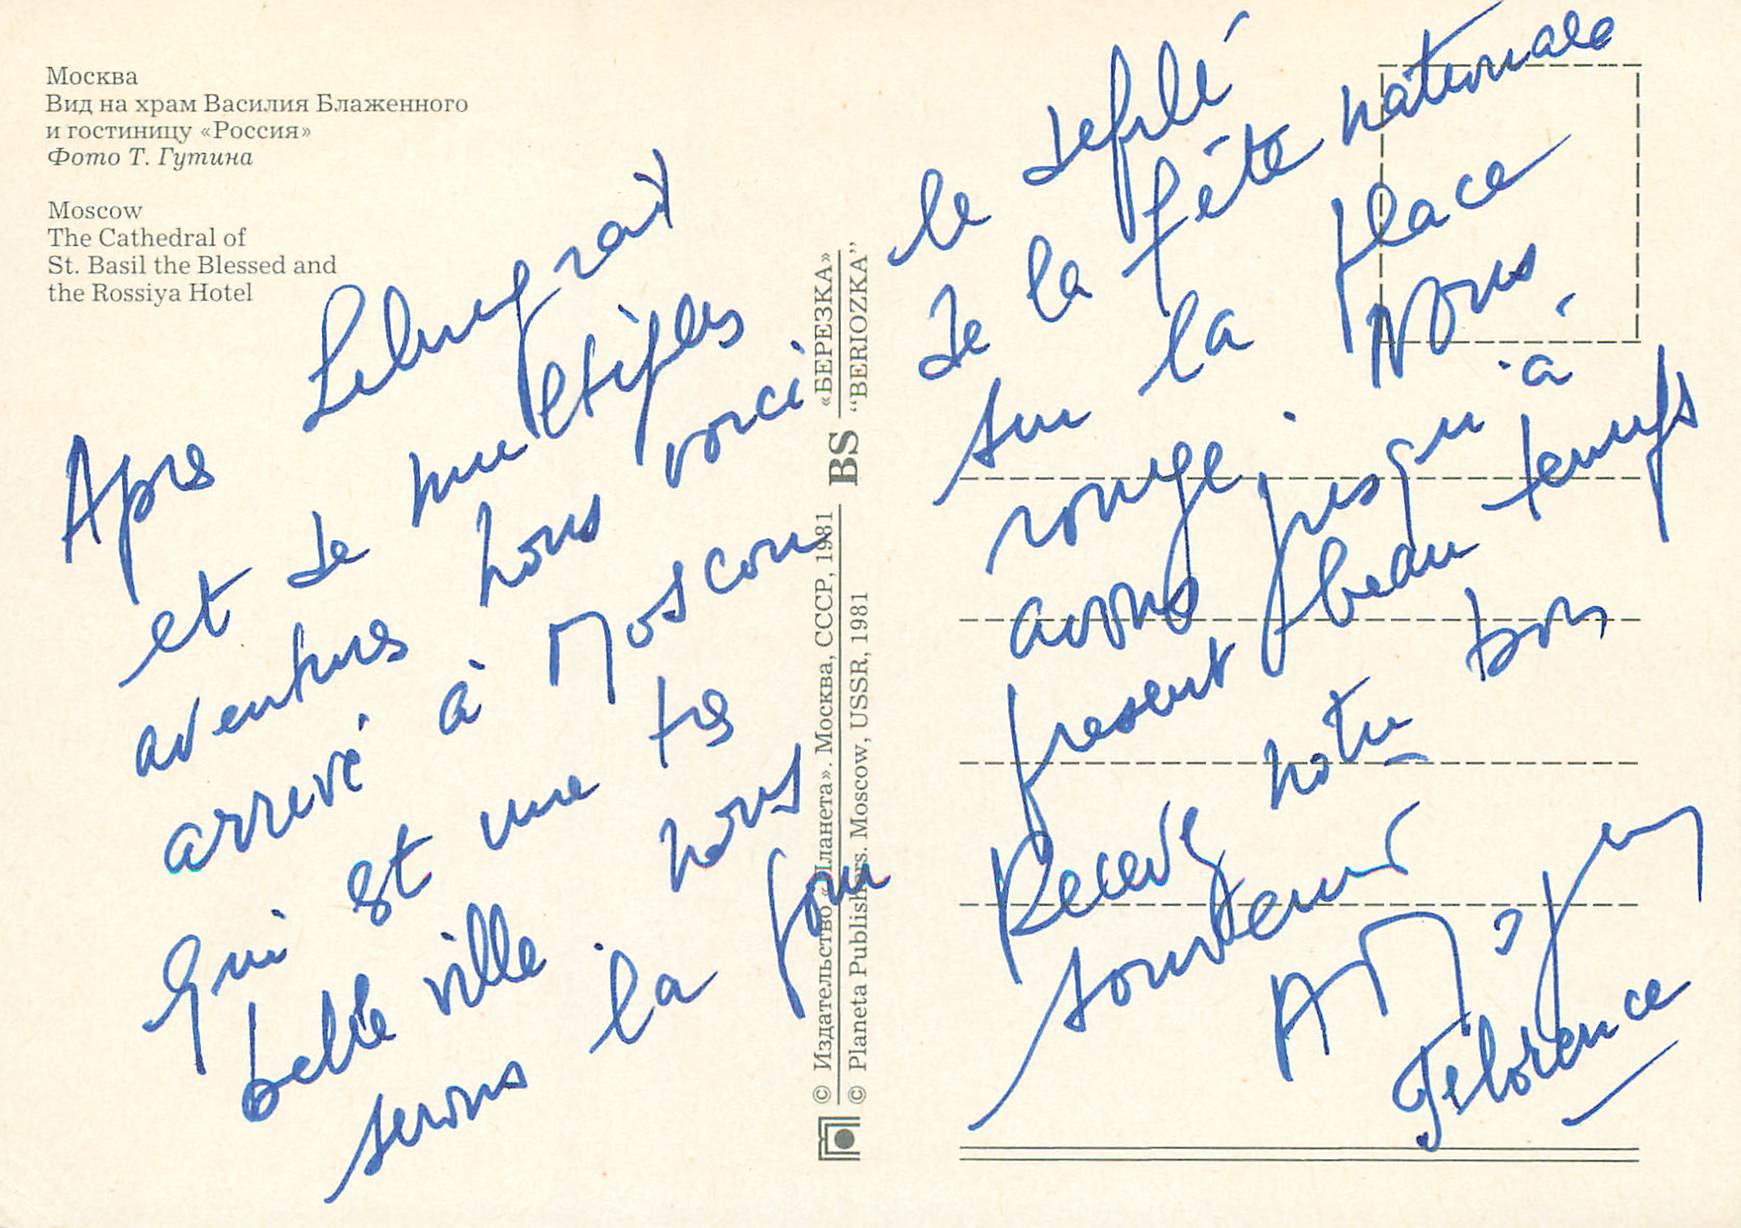 Москва
Вид на храм Василия Блаженного
и гостиницу «Россия»
Фото Т. Гутина
Moscow
The Cathedral of
St. Basil the Blessed and
the Rossiya Hotel
Apres
et de multiples
aventures nous voici
arrivé à Moscou
qui est une tres
belle ville nous
serons la pour
© Издательство «Планета». Москва, СССР, 1981 BS «БЕРЕЗКА»
© Planeta Publishers. Moscow, USSR, 1981 "BERIOZKA"
le defilé
de la fête nationale
sur la place
rouge. Nous
avons jusqu'à
present beau temps
Recevez notre bon
souvenir
Florence